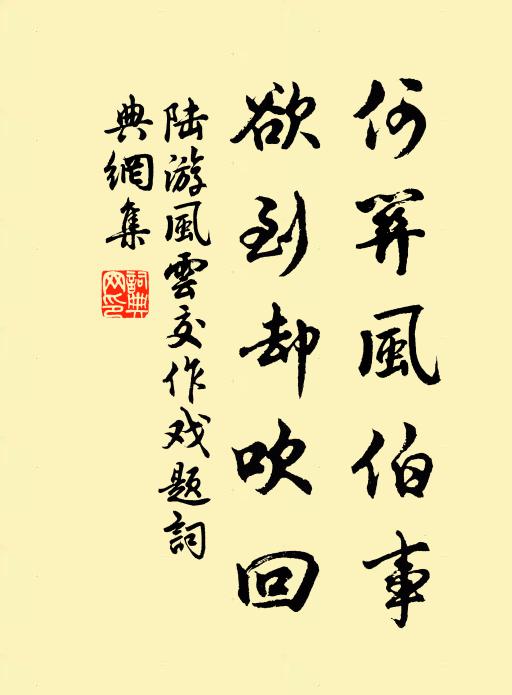 何關風伯事
欲到却吹回
陆游風雲交作戏题詞
典網集
詞典
网印